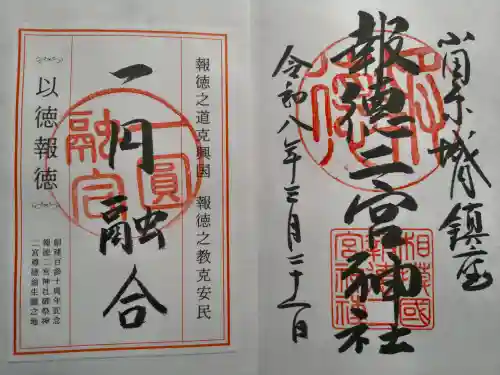 小田原城内鎮座
報徳二宮神社
令和八年三月二十一日
相模國
報徳二
宮神社
報徳之道克興国 報徳之教克安民
一円融合
一圓
融合
以徳報徳
周年記念
報徳二宮神社御祭神
二宮尊徳翁生誕之地